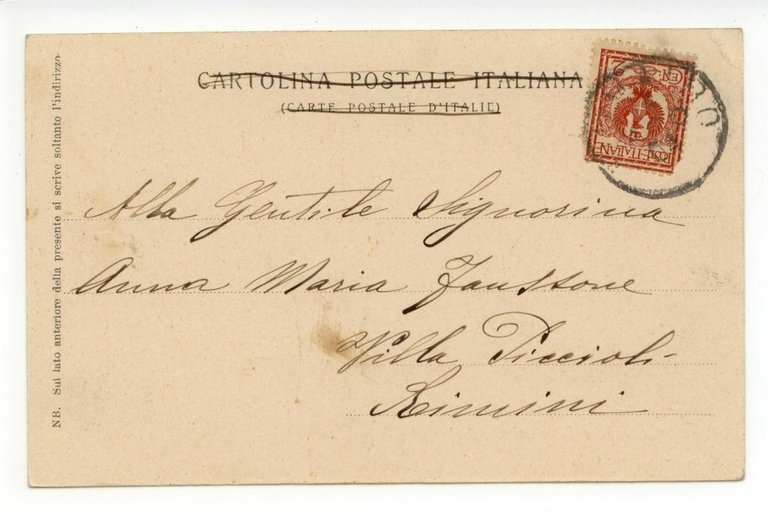 CARTOLINA POSTALE ITALIANA
(CARTE POSTALE D'ITALIE)
Alla Gentile Signorina
Anna Maria Faustone
Villa Piccioli
Rimini
NB. Sul lato anteriore della presente si scrive soltanto l'indirizzo
POSTE ITALIANE